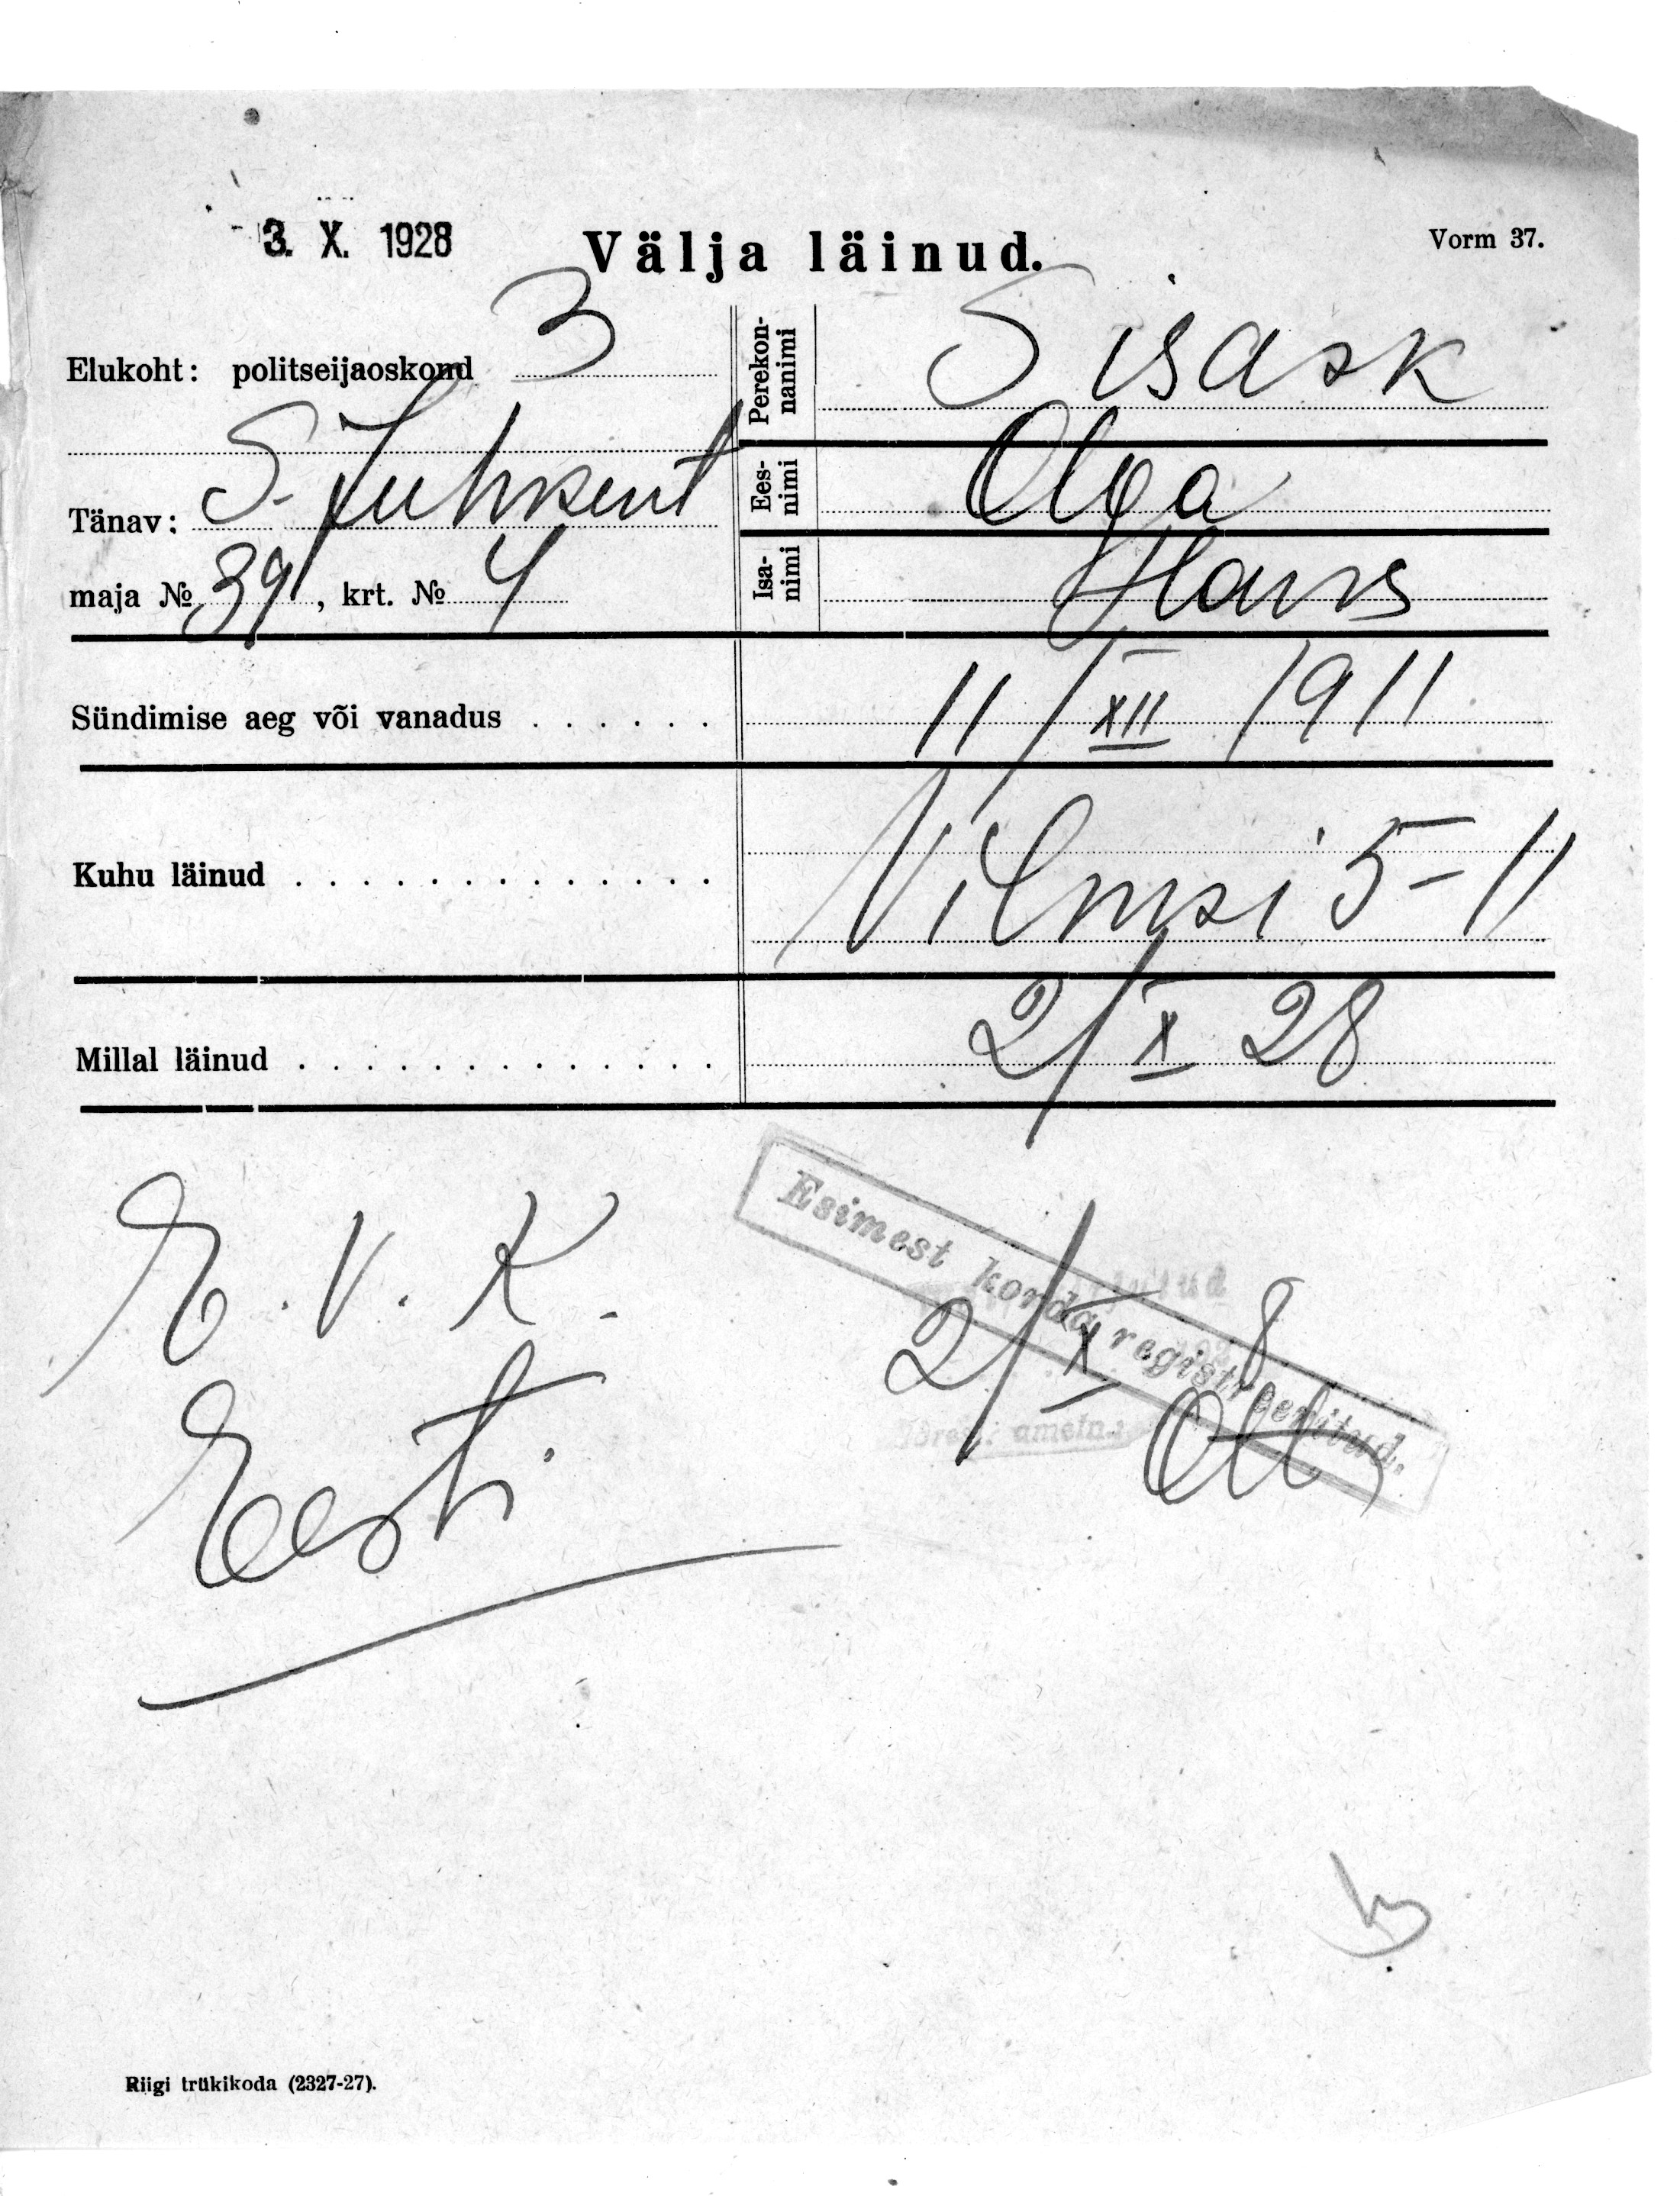 3. X. 1928
Välja läinud.
Vorm 37.
Elukoht: politseijaoskond 3
Tänav: S. Juhkent
maja № 39, krt. № 4
Perekon-
nanimi
Sisask
Ees-
nimi
Olga
Isa-
nimi
Hans
Sündimise aeg või vanadus . . . . . . 11/XII 1911
Kuhu läinud . . . . . . . . . . . . . Vilmsi 5-11
Millal läinud . . . . . . . . . . . . . 2/X 28
E. V. K.
Eesti
Esimest korda registreeritud.
2/X 8
Riigi trükikoda (2327-27).